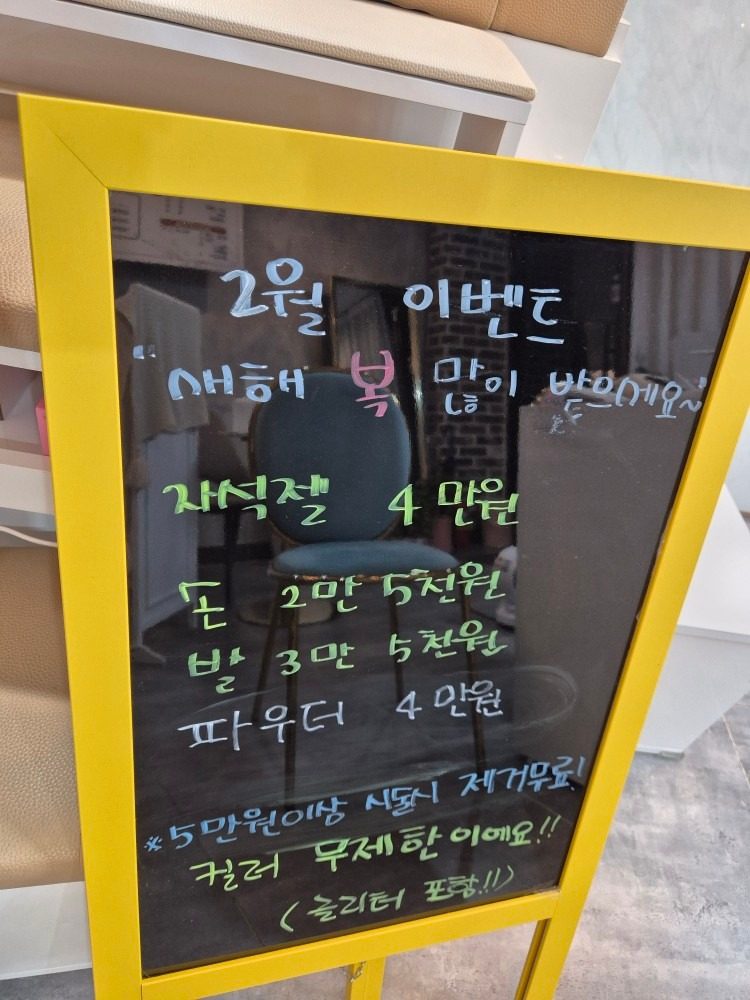 2월 이벤트
"새해 복 많이 받으세요~"
자석젤 4만원
손 2만 5천원
발 3만 5천원
파우더 4만원
※5만원이상 시술시 제거무료!
컬러 무제한이에요!!
(글리터 포함!!)